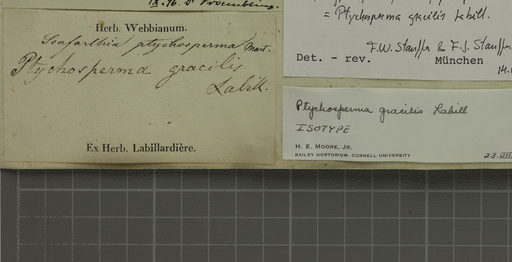 IX.96. D
Herb. Webbianum.
Seaforthia ptychosperma Mart.
Ptychosperma gracilis
Labill.
Ex Herb. Labillardière.
= Ptychosperma gracilis Labill.
F.W. Stauffer & F.J. Stauffer
Det. - rev. München
Ptychosperma gracilis Labill
ISOTYPE
H. E. MOORE, JR.
BAILEY HORTORIUM, CORNELL UNIVERSITY